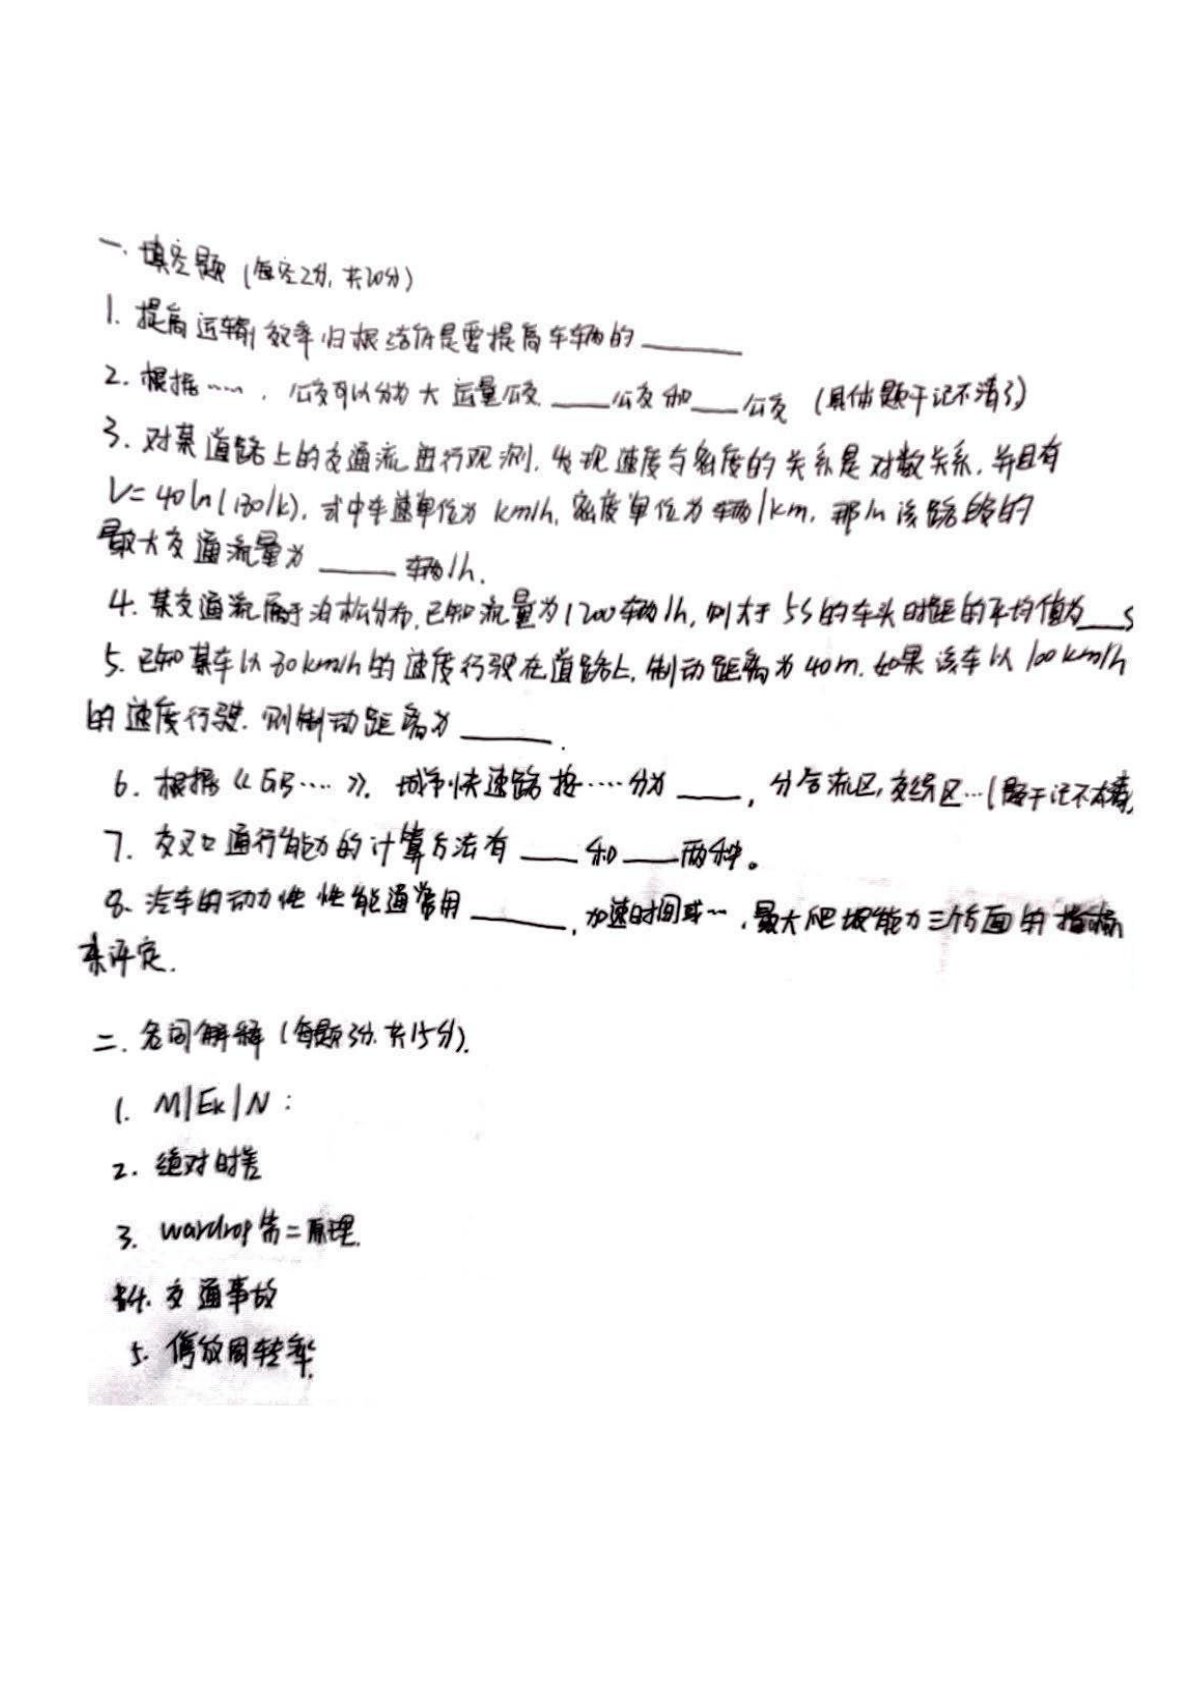 一. 填空题 (每空2分, 共20分)
1. 提高运输效率归根结底是要提高车辆的____
2. 根据……, 公交可以分为大运量公交 ___公交和___公交 (具体题干记不清了)
3. 对某道路上的交通流进行观测, 发现速度与密度的关系是对数关系, 并且有
V=40ln(180/k), 式中车速单位为 km/h, 密度单位为辆/km, 那么该路段的
最大交通流量为 ____ 辆/h.
4. 某交通流属于泊松分布, 已知流量为1200辆/h, 则大于5s的车头时距的平均值为__s
5. 已知某车以 km/h的速度行驶在道路上, 制动距离为40m. 如果该车以100km/h
的速度行驶. 则制动距离为 ____.
6. 根据《GB……》, 城市快速路按……分为 ___, 分合流区, 交织区…(题干记不太清)
7. 交叉口通行能力的计算方法有 ___ 和 ___ 两种。
8. 汽车的动力性性能通常用 ____, 加速时间或…, 最大爬坡能力三个方面的指标
来评定.
二. 名词解释 (每题3分, 共15分).
1. M/Ek/N:
2. 绝对时差
3. wardrop第二原理.
4. 交通事故
5. 停放周转率.